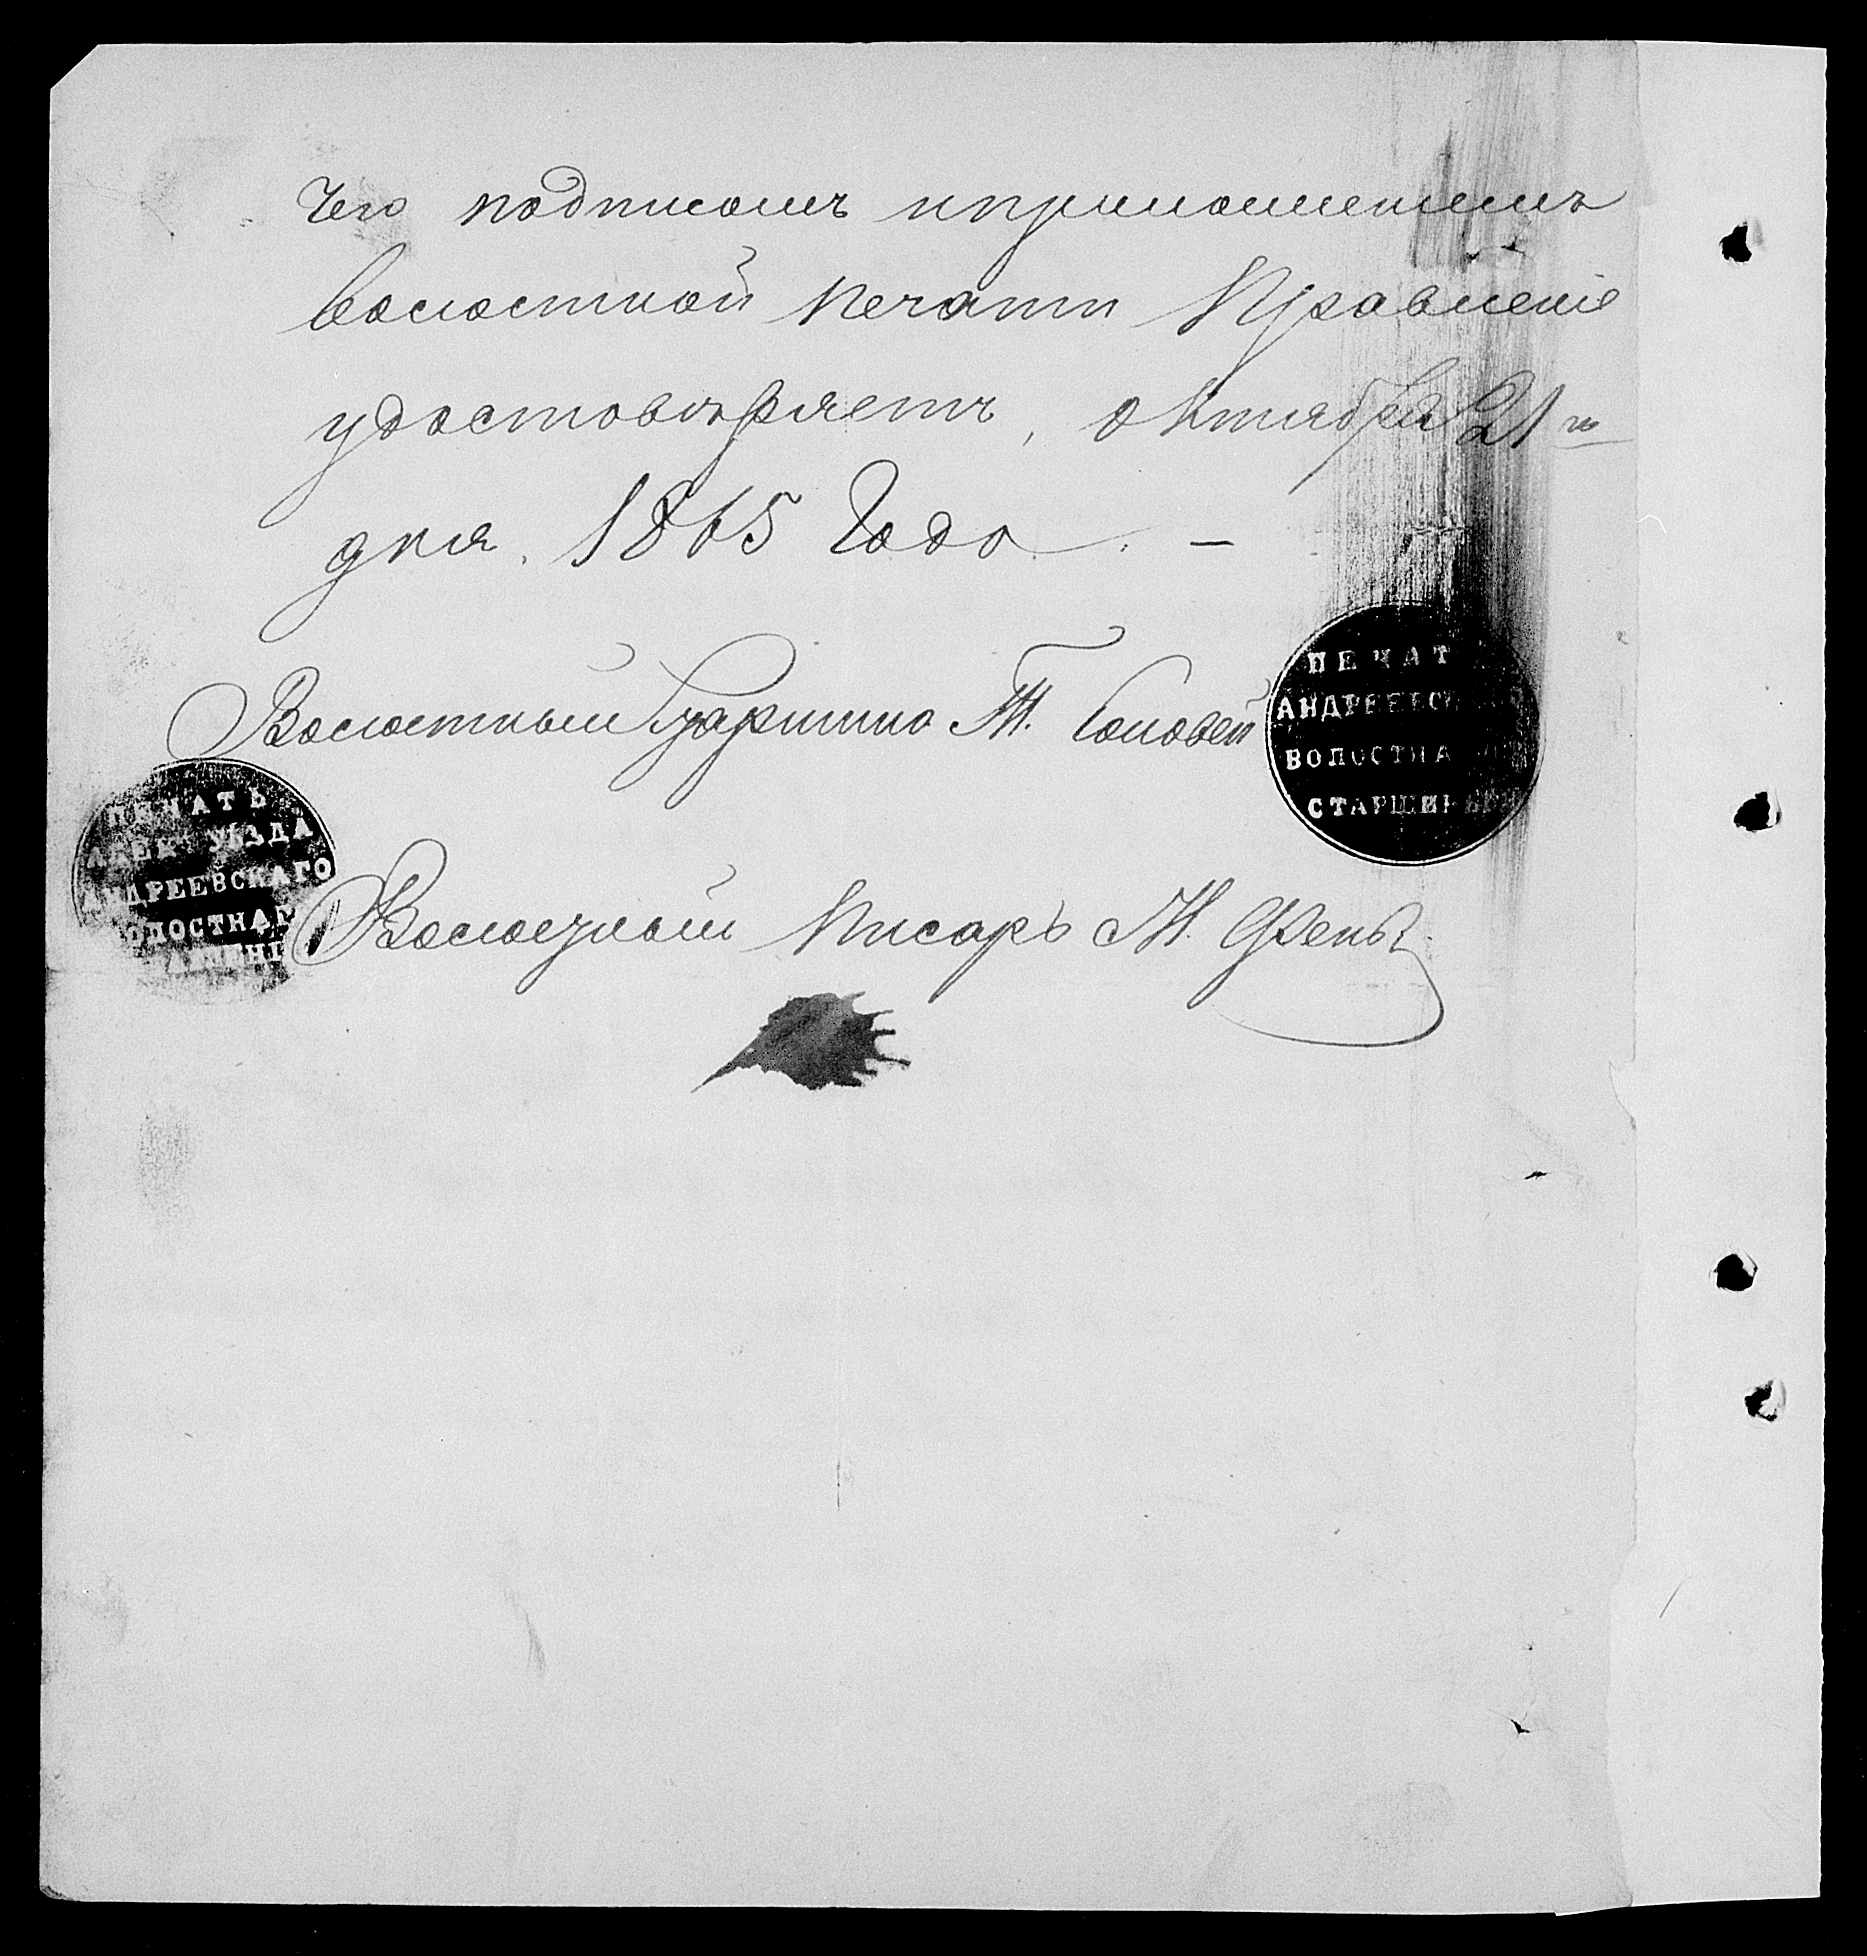 чего подписомъ иприложениемъ
волостной печати Правленіе
удостовѣряетъ, октября 21 го
дня. 1865 Года. —
Волостный Старшина Т. Соловей
ПЕЧАТ
АНДРЕЕВС
ВОЛОСТНА
СТАРШИН
ПЕЧАТЬ
АЛЕК УѢЗДА
АНДРЕЕВСКАГО
ВОЛОСТНАГ
Волосный Писарь М.